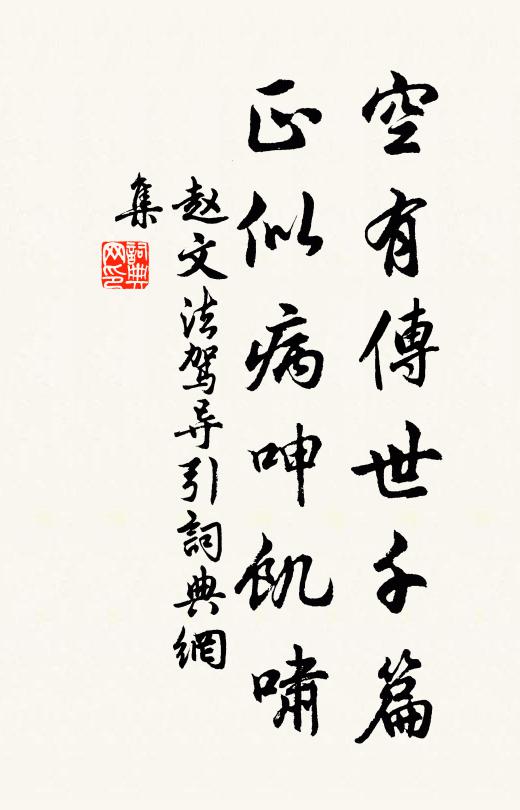 空有傳世千篇
正似病呻飢嘯
赵文法驾导引詞典網
集
詞典
网印